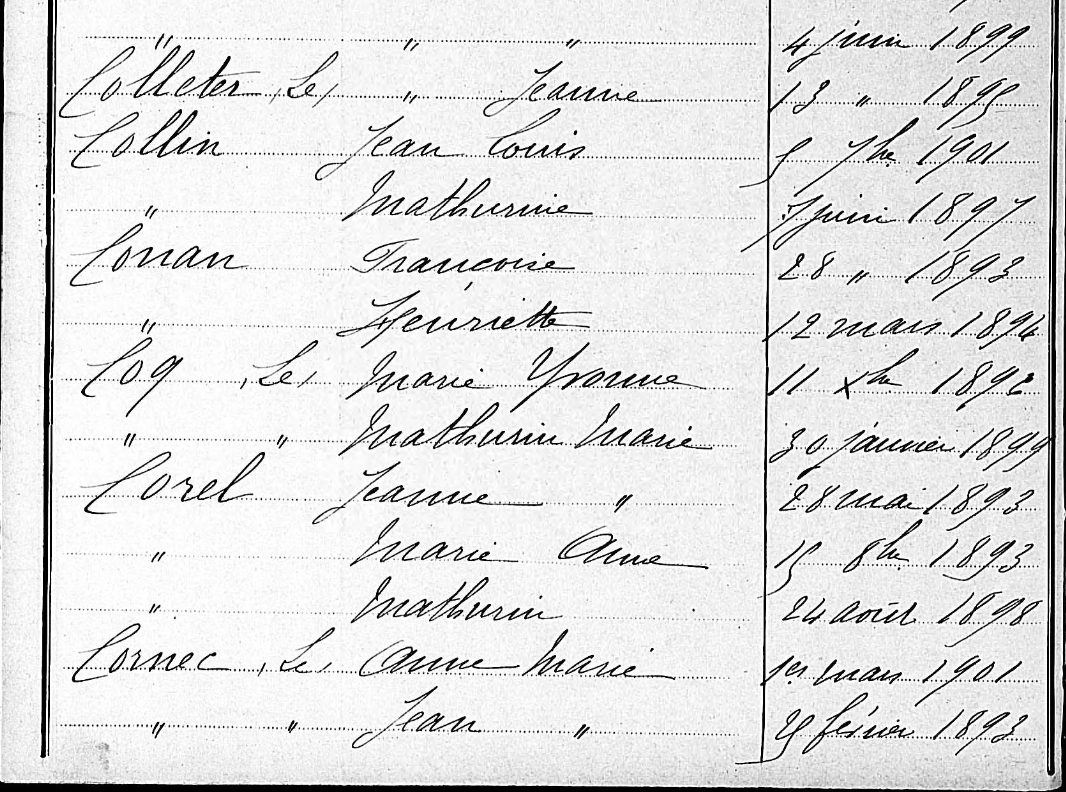 " " " 4 juin 1899
Colleter (Le) " Jeanne 13 " 1895
Collin Jean Louis 5 7bre 1901
" Mathurine 7 juin 1897
Conan Françoise 28 " 1893
" Henriette 12 mars 1896
Coq (Le) Marie Yvonne 11 Xbre
" " Mathurin Marie 30 janvier 1899
Corel Jeanne " 28 mai 1893
" Marie Anne 15 8bre 1893
" Mathurin 24 août 1898
Cornec (Le) Anne Marie 1er mars 1901
" " Jean " 25 février 1893